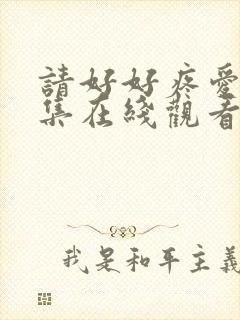 請好好疼愛
集在綫觀看
我是和平主義